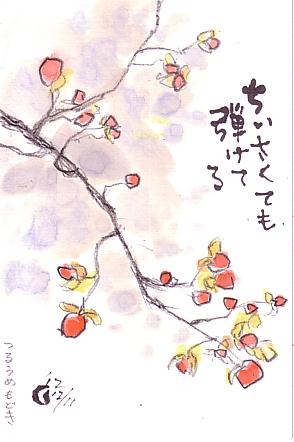 ちいさくても
弾けてる
つるうめもどき
'12
12/11